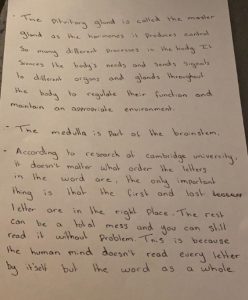 - The Pituitary gland is called the master
gland as the hormones it produces control
So many different processes in the body It
Senses the body's needs and sends signals
to different organs and glands throughout
the body to regulate their function and
maintain an appropriate environment.
- The medulla is part of the brainstem.
- According to research at cambridge university,
it doesn't matter what order the letters
in the word are, the only important
thing is that the first and last
letter are in the right place. The rest
can be a total mess and you can still
read it without problem. This is because
the human mind doesn't read every letter
by itself but the word as a whole.